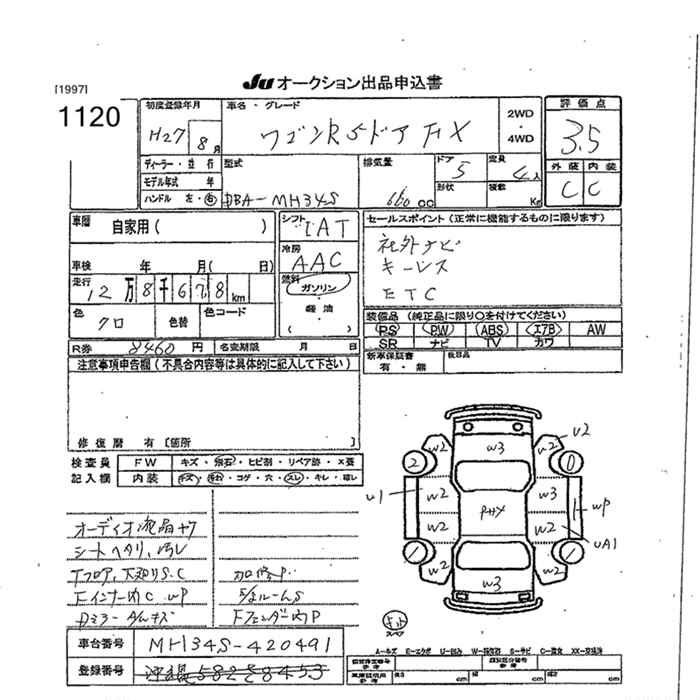 [1997]
JU オークション出品申込書
1120
初度登録年月
H27 8月
車名・グレード
ワゴンR 5ドア FX
2WD
・
4WD
評価点
3.5
外装 内装
C C
ディーラー・並行
モデル年式 年
ハンドル 左・右
型式
DBA-MH34S
排気量
660 cc
ドア
5
形状
定員
4人
積載
Kg
車歴
自家用( )
車検 年 月( 日)
走行
12万8千678km
色
クロ
色替
色コード
シフト
IAT
冷房
AAC
燃料
ガソリン
・
軽油
( )
セールスポイント(正常に機能するものに限ります)
社外ナビ
キーレス
ETC
装備品(純正品に限り○を付けてください)
PS PW ABS エアB AW
SR ナビ TV カワ
新車保証書
有・無
後日品
R券 8460 円 名変期限 月 日
注意事項申告欄(不具合内容等は具体的に記入して下さい)
修復歴 有[箇所 ]
検査員
記入欄
FW キズ・飛石・ヒビ割・リペア跡・X要
内装 キズ・汚れ・コゲ・穴・スレ・キレ・
オーディオ液晶
シートヘタリ、汚レ
Tフロア、下廻りS.C
Fインナー内C WP
Dミラー
加修P
Fフェンダー内P
車台番号 MH34S-420491
登録番号 沖縄582 8453
W2 W3 W2 U2
2 0
U1 W2 PHX W3 WP
W2 W2 UA1
W2 W3 W2
キット
スペア
A-キズ E-エクボ U-凹み W-補修跡 S-サビ C-腐食 XX-交換済
cm cm cm